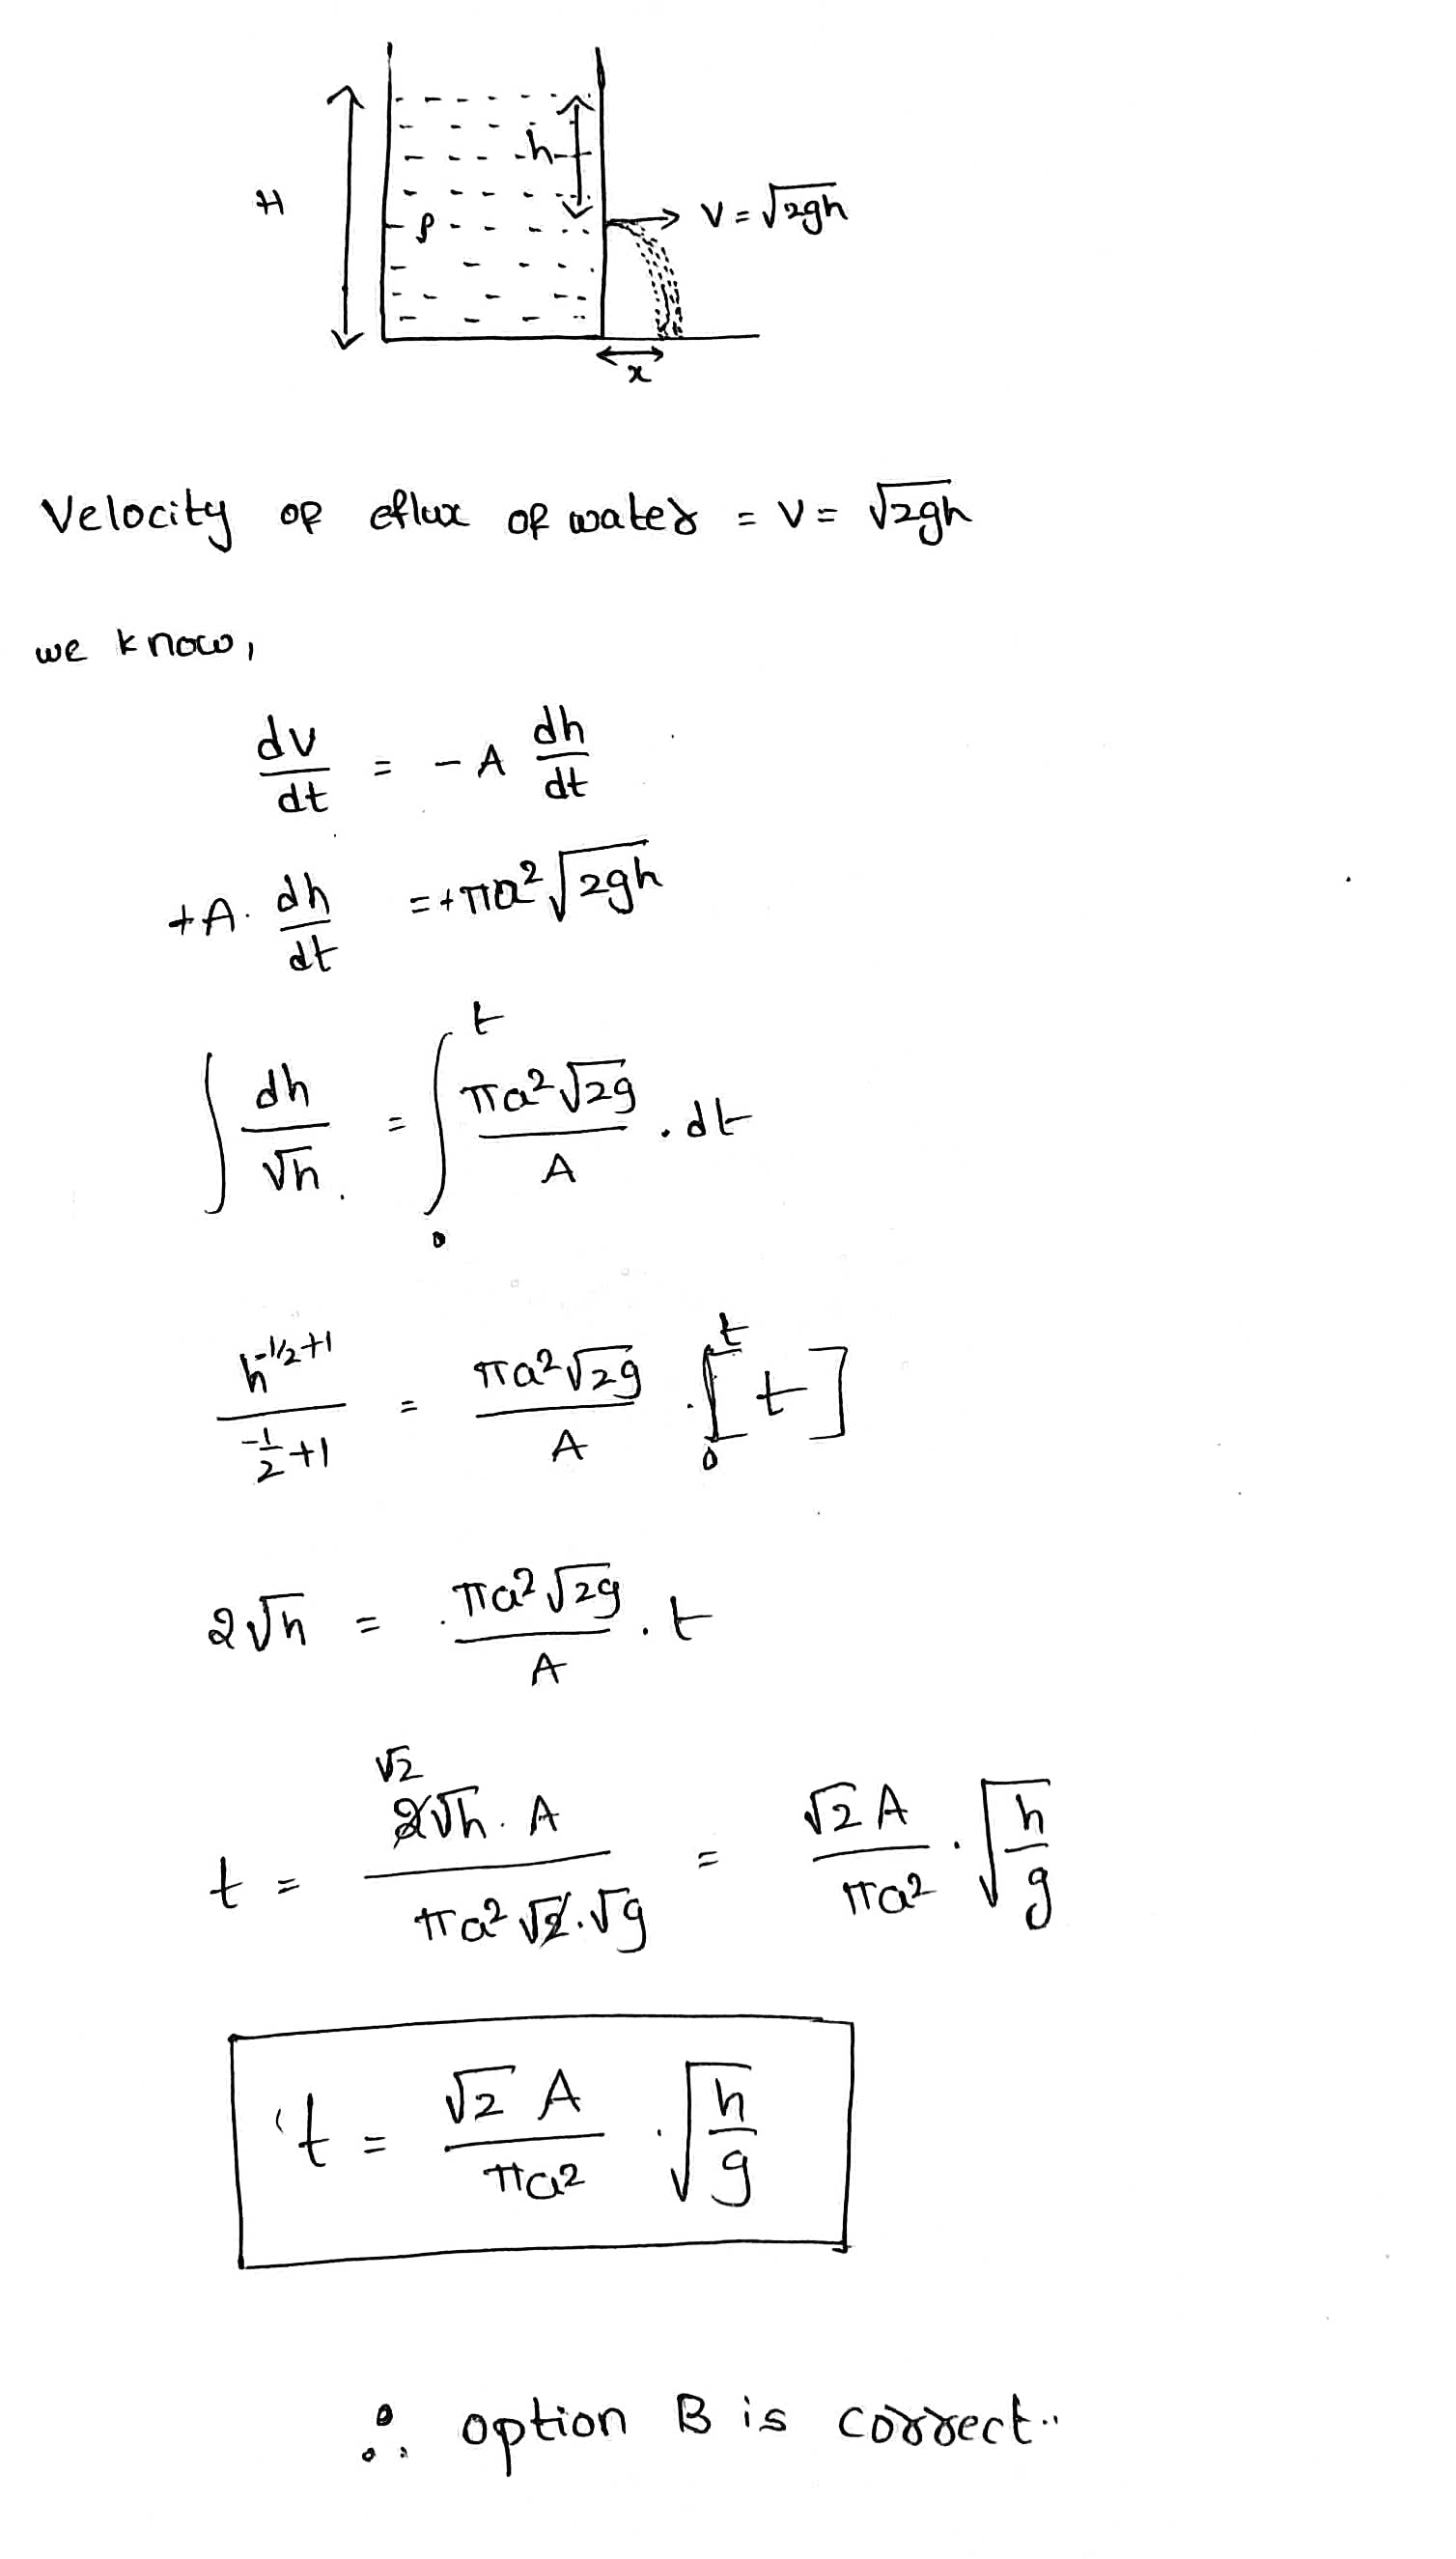 H
h
ρ
V = √2gh
x
Velocity of eflux of water = V = √2gh
we know,
dv/dt = - A dh/dt
+A. dh/dt = +πa² √2gh
∫ dh/√h = ∫₀ᵗ πa²√2g/A . dt
h^(-1/2+1)/(-1/2+1) = πa²√2g/A . ₀[t]ᵗ
2√h = πa²√2g/A . t
t = √2 2√h . A/πa² √2.√g = √2 A/πa² . √h/g
t = √2 A/πa² . √h/g
∴ option B is correct..